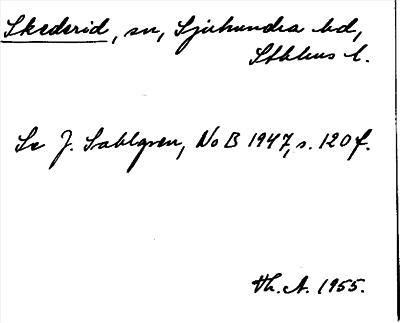 Skederid, sn, Sjuhundra hd,
Sthlms l.
Se J. Sahlgren, NoB 1947, s. 120 f.
Th. A. 1955.